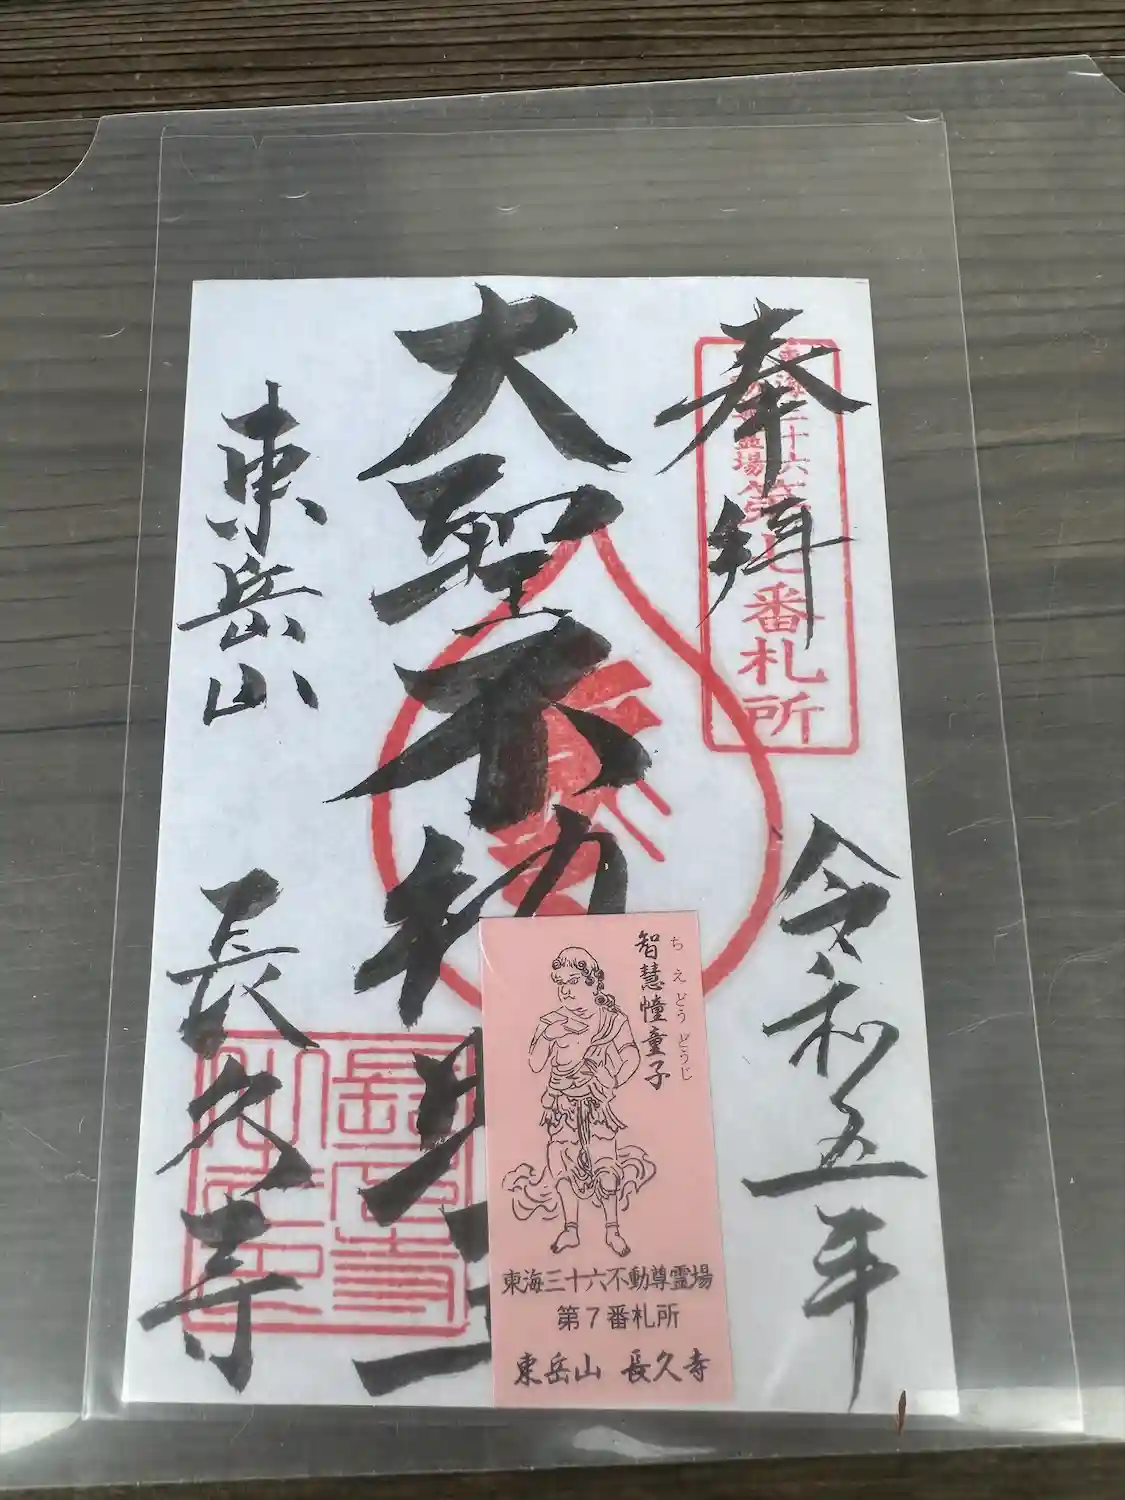 奉拝
東海三十六
霊場
第七番札所
令和五年
大聖不動明王
東岳山
長久寺
智慧幢童子
ちえどうどうじ
東海三十六不動尊霊場
第7番札所
東岳山 長久寺